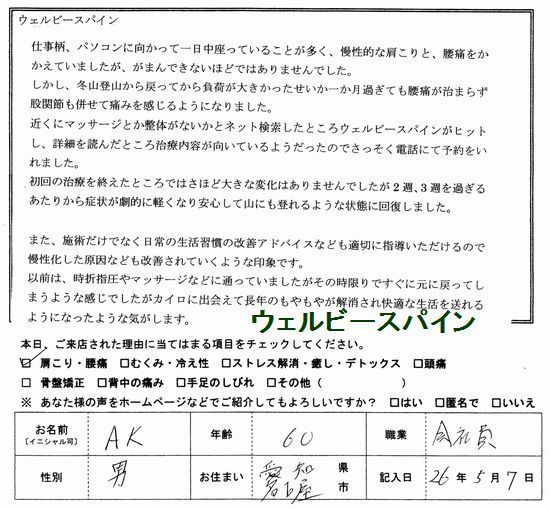 ウェルビースパイン
仕事柄、パソコンに向かって一日中座っていることが多く、慢性的な肩こりと、腰痛をか
かえていましたが、がまんできないほどではありませんでした。
しかし、冬山登山から戻ってから負荷が大きかったせいか一か月過ぎても腰痛が治まらず
股関節も併せて痛みを感じるようになりました。
近くにマッサージとか整体がないかとネット検索したところウェルビースパインがヒット
し、詳細を読んだところ治療内容が向いているようだったのでさっそく電話にて予約をい
れました。
初回の治療を終えたところではさほど大きな変化はありませんでしたが2週、3週を過ぎる
あたりから症状が劇的に軽くなり安心して山にも登れるような状態に回復しました。
また、施術だけでなく日常の生活習慣の改善アドバイスなども適切に指導いただけるので
慢性化した原因なども改善されていくような印象です。
以前は、時折指圧やマッサージなどに通っていましたがその時限りですぐに元に戻ってし
まうような感じでしたがカイロに出会えて長年のもやもやが解消され快適な生活を送れる
ようになったような気がします。
ウェルビースパイン
本日、ご来店された理由に当てはまる項目をチェックしてください。
☑ 肩こり・腰痛 □むくみ・冷え性 □ストレス解消・癒し・デトックス □頭痛
□ 骨盤矯正 □背中の痛み □手足のしびれ □その他（ ）
※ あなた様の声をホームページなどでご紹介してもよろしいですか？ □はい □匿名で □いいえ
お名前 AK 年齢 60 職業 会社員
［イニシャル可］
性別 男 お住まい 愛知 県 名古屋 市 記入日 26 年 5 月 7 日